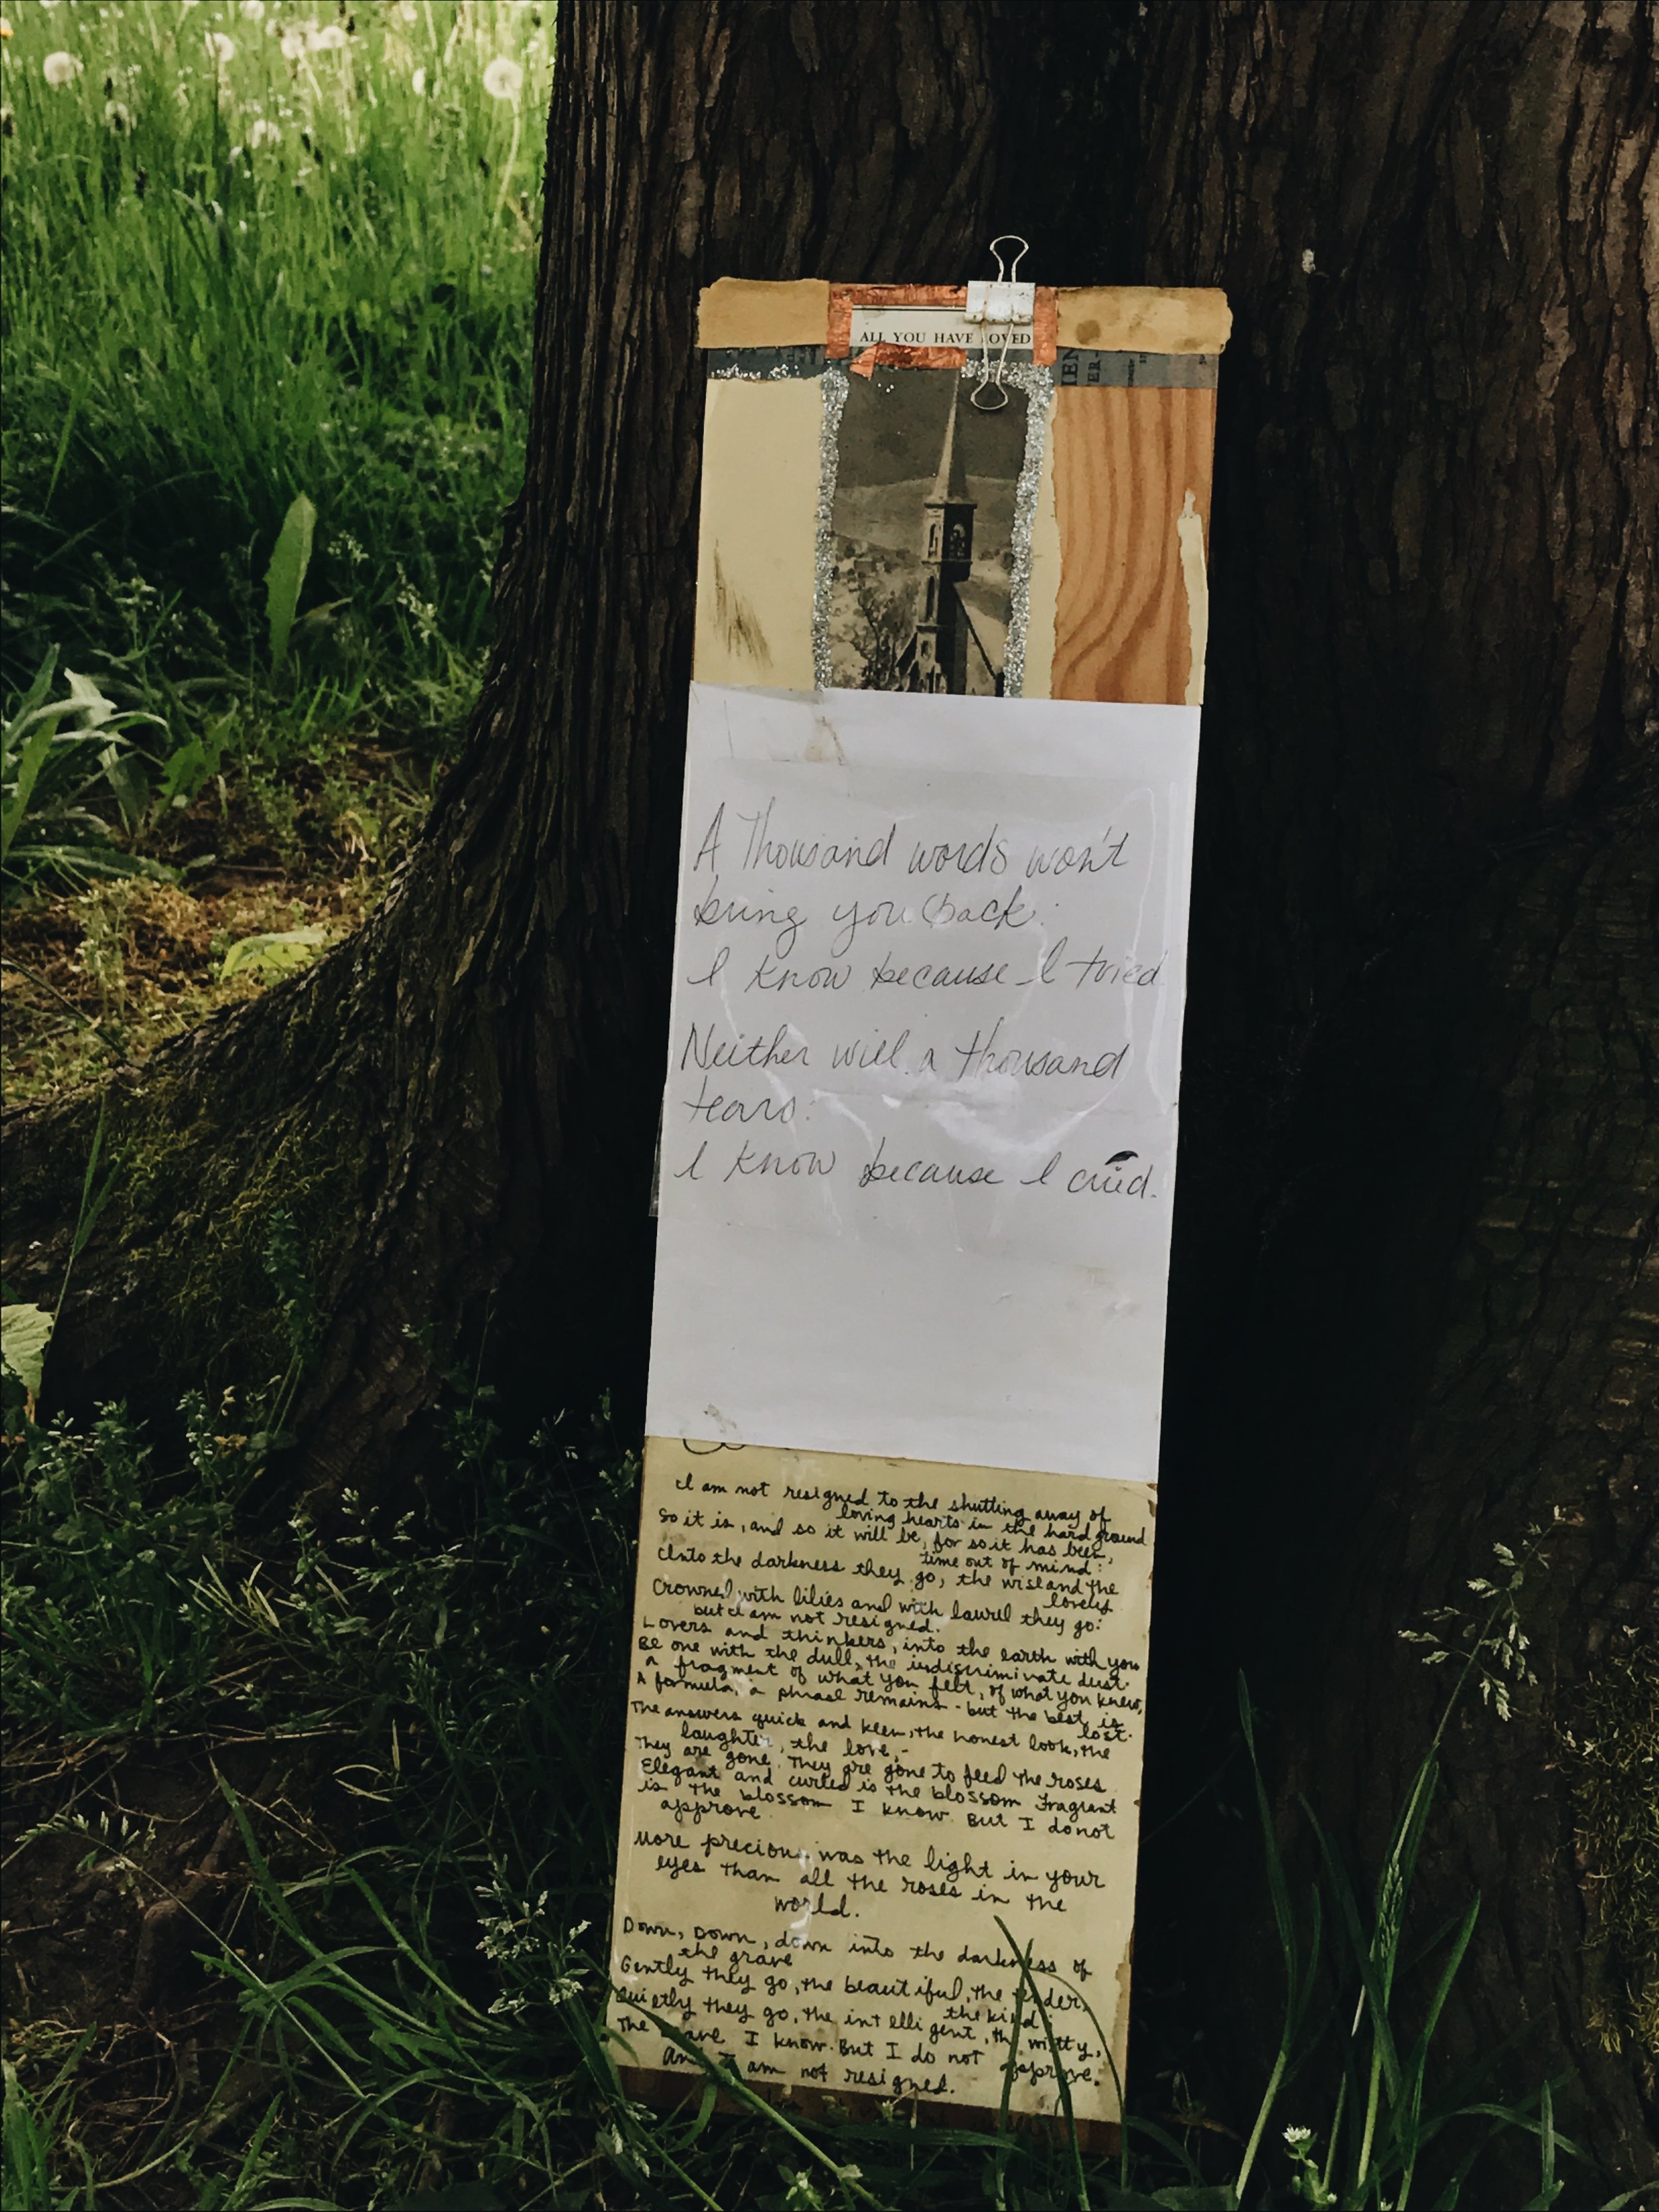 ALL YOU HAVE LOVED
IEN
ER-
A Thousand words won't
bring you back.
I know because I tried
Neither will a thousand
tears.
I know because I cried.
I am not resigned to the shutting away of
loving hearts in the hard ground
So it is, and so it will be, for so it has been,
time out of mind:
Into the darkness they go, the wise and the
lovely
Crowned with lilies and with laurel they go:
but I am not resigned.
Lovers and thinkers, into the earth with you
Be one with the dull, the indiscriminate dust.
A fragment of what you felt, of what you knew,
A formula, a phrase remains - but the best is
lost.
The answers quick and keen, the honest look, the
laughter, the love, -
They are gone. They are gone to feed the roses
Elegant and curled is the blossom Fragrant
is the blossom I know. But I do not
approve
More precious was the light in your
eyes than all the roses in the
world.
Down, Down, down into the darkness of
the grave
Gently they go, the beautiful, the tender,
the kind
Quietly they go, the intelligent, the witty,
The brave I know. But I do not approve.
And I am not resigned.